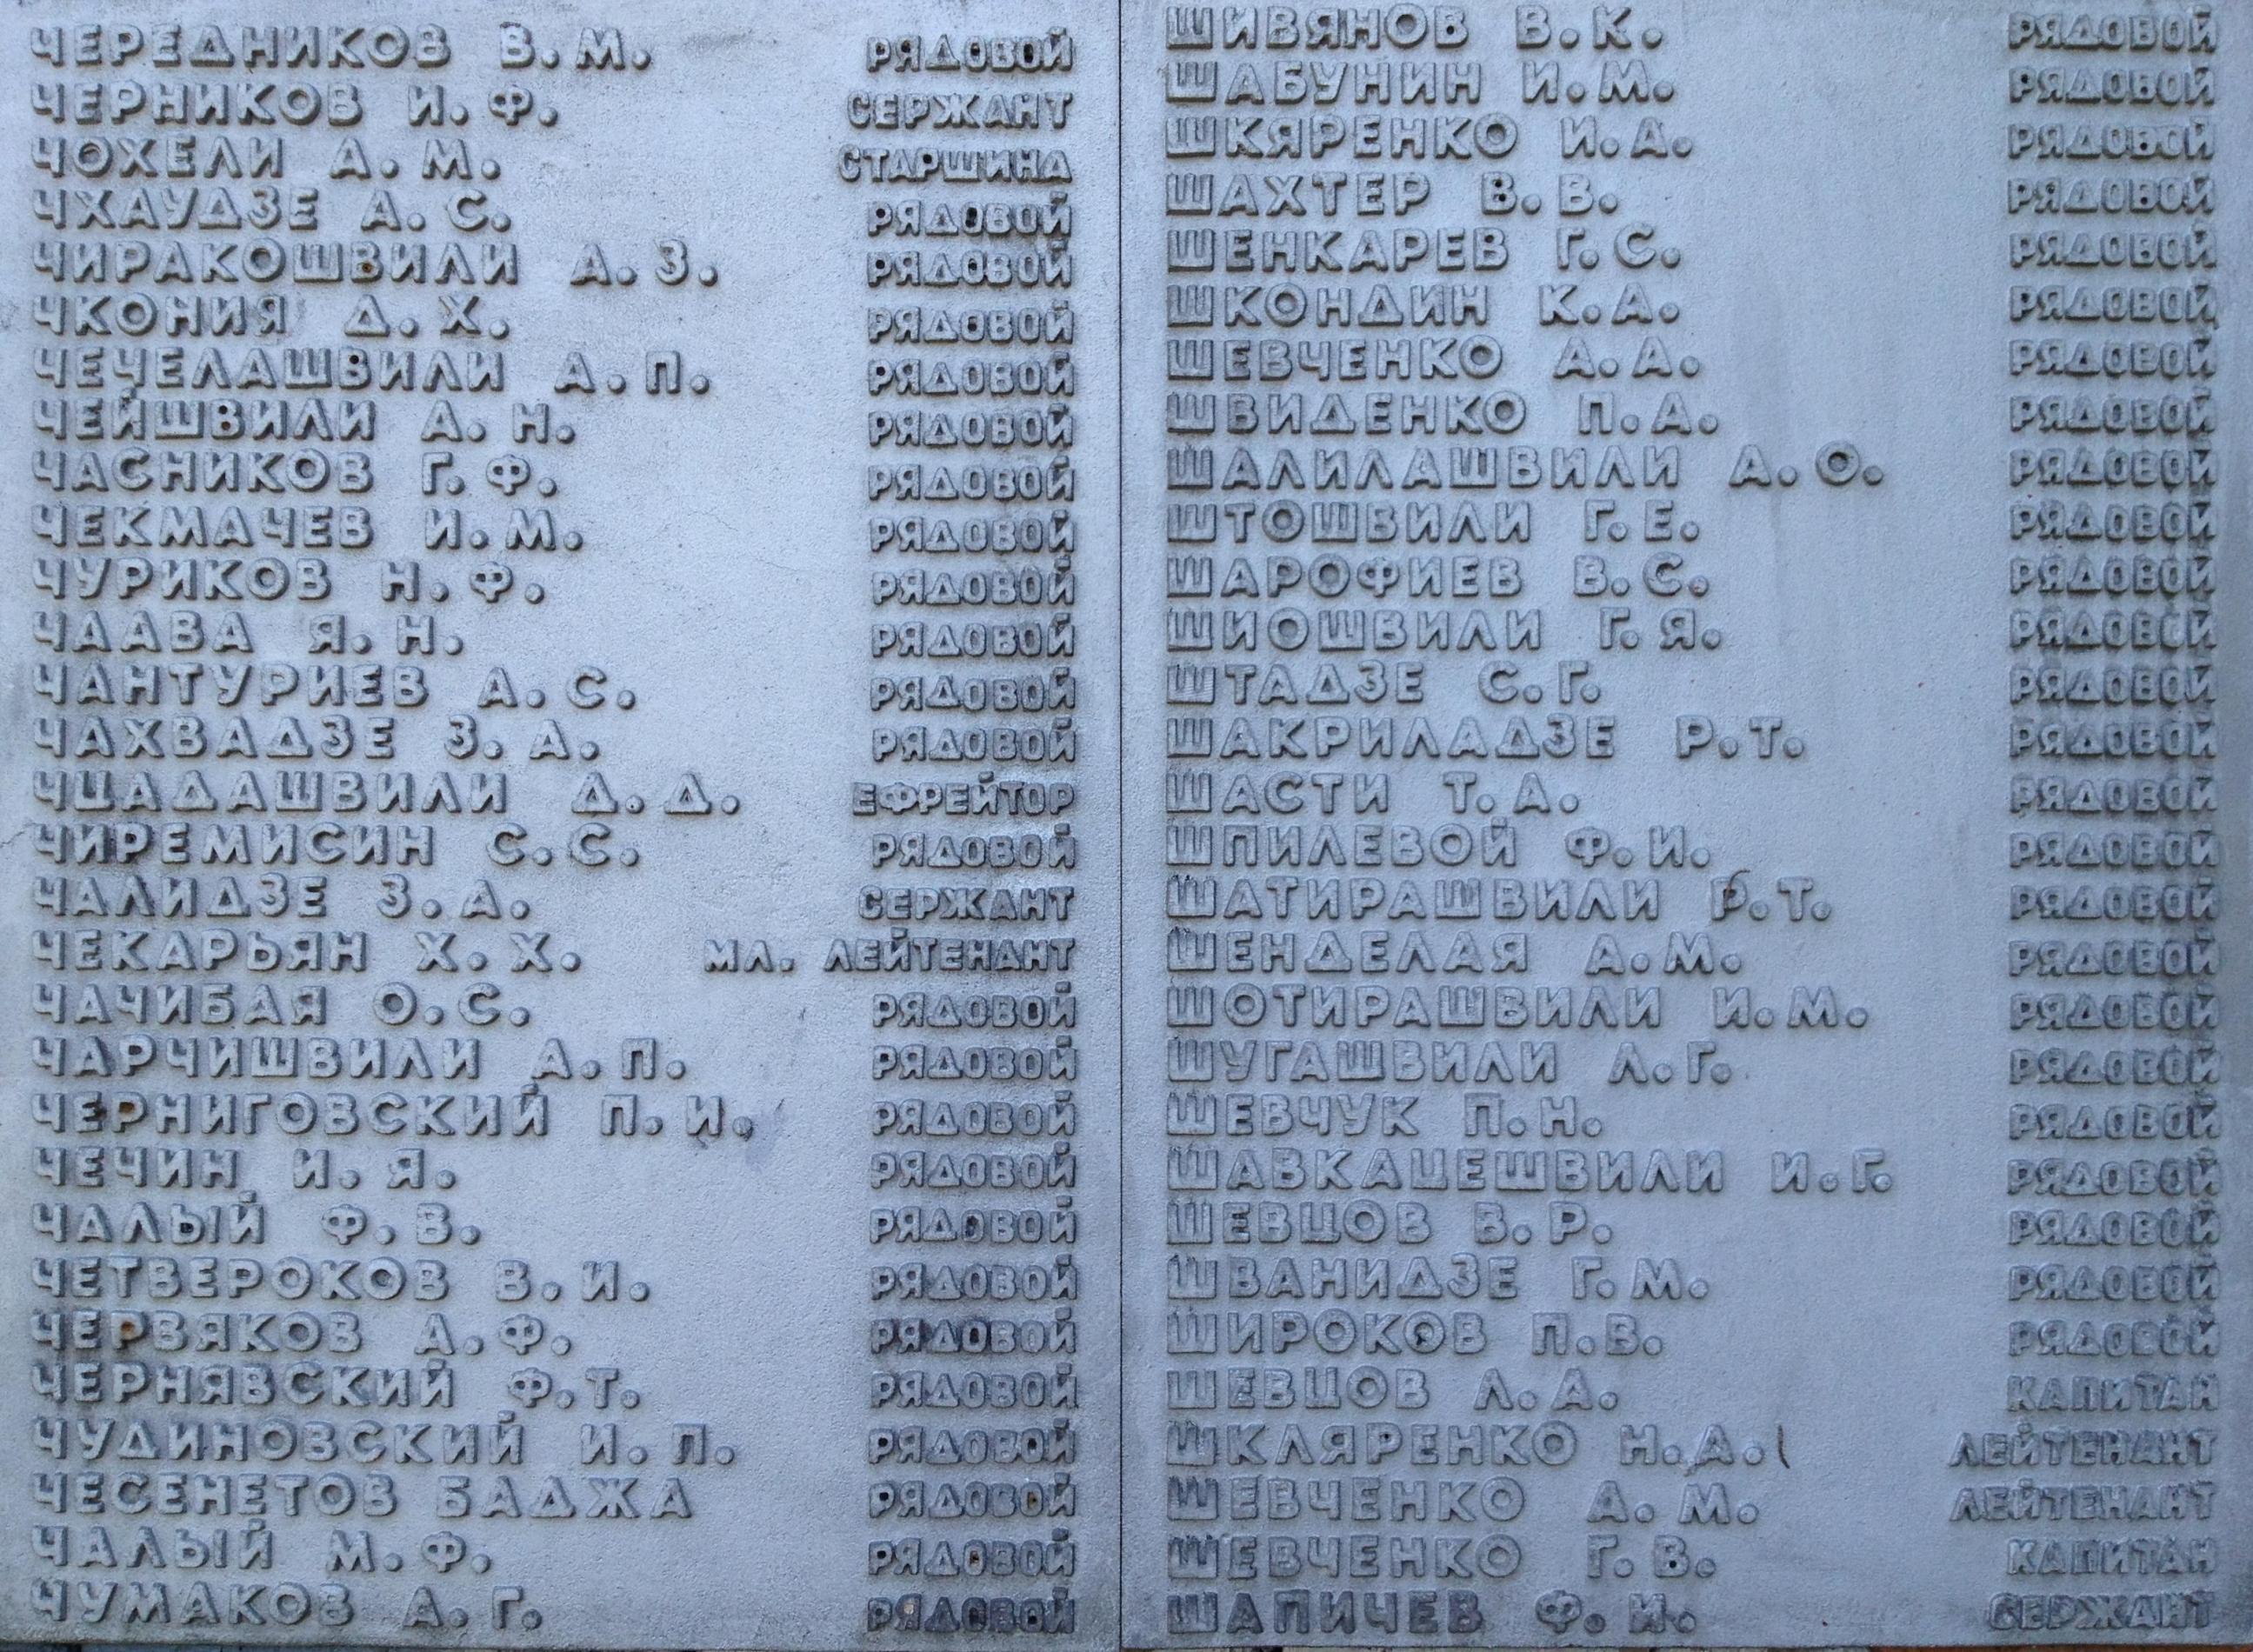 ЧЕРЕДНИКОВ В.М. РЯДОВОЙ
ЧЕРНИКОВ И.Ф. СЕРЖАНТ
ЧОХЕЛИ А.М. СТАРШИНА
ЧХАУДЗЕ А.С. РЯДОВОЙ
ЧИРАКОШВИЛИ А.З. РЯДОВОЙ
ЧКОНИЯ Д.Х. РЯДОВОЙ
ЧЕЧЕЛАШВИЛИ А.П. РЯДОВОЙ
ЧЕЙШВИЛИ А.Н. РЯДОВОЙ
ЧАСНИКОВ Г.Ф. РЯДОВОЙ
ЧЕКМАЧЕВ И.М. РЯДОВОЙ
ЧУРИКОВ Н.Ф. РЯДОВОЙ
ЧААВА Я.Н. РЯДОВОЙ
ЧАНТУРИЕВ А.С. РЯДОВОЙ
ЧАХВАДЗЕ З.А. РЯДОВОЙ
ЧЦАДАШВИЛИ Д.Д. ЕФРЕЙТОР
ЧИРЕМИСИН С.С. РЯДОВОЙ
ЧАЛИДЗЕ З.А. СЕРЖАНТ
ЧЕКАРЬЯН Х.Х. МЛ. ЛЕЙТЕНАНТ
ЧАЧИБАЯ О.С. РЯДОВОЙ
ЧАРЧИШВИЛИ А.П. РЯДОВОЙ
ЧЕРНИГОВСКИЙ П.И. РЯДОВОЙ
ЧЕЧИН И.Я. РЯДОВОЙ
ЧАЛЫЙ Ф.В. РЯДОВОЙ
ЧЕТВЕРОКОВ В.И. РЯДОВОЙ
ЧЕРВЯКОВ А.Ф. РЯДОВОЙ
ЧЕРНЯВСКИЙ Ф.Т. РЯДОВОЙ
ЧУДИНОВСКИЙ И.П. РЯДОВОЙ
ЧЕСЕНЕТОВ БАДЖА РЯДОВОЙ
ЧАЛЫЙ М.Ф. РЯДОВОЙ
ЧУМАКОВ А.Г. РЯДОВОЙ
ШИВЯНОВ В.К. РЯДОВОЙ
ШАБУНИН И.М. РЯДОВОЙ
ШКЯРЕНКО И.А. РЯДОВОЙ
ШАХТЕР В.В. РЯДОВОЙ
ШЕНКАРЕВ Г.С. РЯДОВОЙ
ШКОНДИН К.А. РЯДОВОЙ
ШЕВЧЕНКО А.А. РЯДОВОЙ
ШВИДЕНКО П.А. РЯДОВОЙ
ШАЛИЛАШВИЛИ А.О. РЯДОВОЙ
ШТОШВИЛИ Г.Е. РЯДОВОЙ
ШАРОФИЕВ В.С. РЯДОВОЙ
ШИОШВИЛИ Г.Я. РЯДОВОЙ
ШТАДЗЕ С.Г. РЯДОВОЙ
ШАКРИЛАДЗЕ Р.Т. РЯДОВОЙ
ШАСТИ Т.А. РЯДОВОЙ
ШПИЛЕВОЙ Ф.И. РЯДОВОЙ
ШАТИРАШВИЛИ Р.Т. РЯДОВОЙ
ШЕНДЕЛАЯ А.М. РЯДОВОЙ
ШОТИРАШВИЛИ И.М. РЯДОВОЙ
ШУГАШВИЛИ Л.Г. РЯДОВОЙ
ШЕВЧУК П.Н. РЯДОВОЙ
ШАВКАЦЕШВИЛИ И.Г. РЯДОВОЙ
ШЕВЦОВ В.Р. РЯДОВОЙ
ШВАНИДЗЕ Г.М. РЯДОВОЙ
ШИРОКОВ П.В. РЯДОВОЙ
ШЕВЦОВ Л.А. КАПИТАН
ШКЛЯРЕНКО Н.А. ЛЕЙТЕНАНТ
ШЕВЧЕНКО А.М. ЛЕЙТЕНАНТ
ШЕВЧЕНКО Г.В. КАПИТАН
ШАПИЧЕВ Ф.И. СЕРЖАНТ